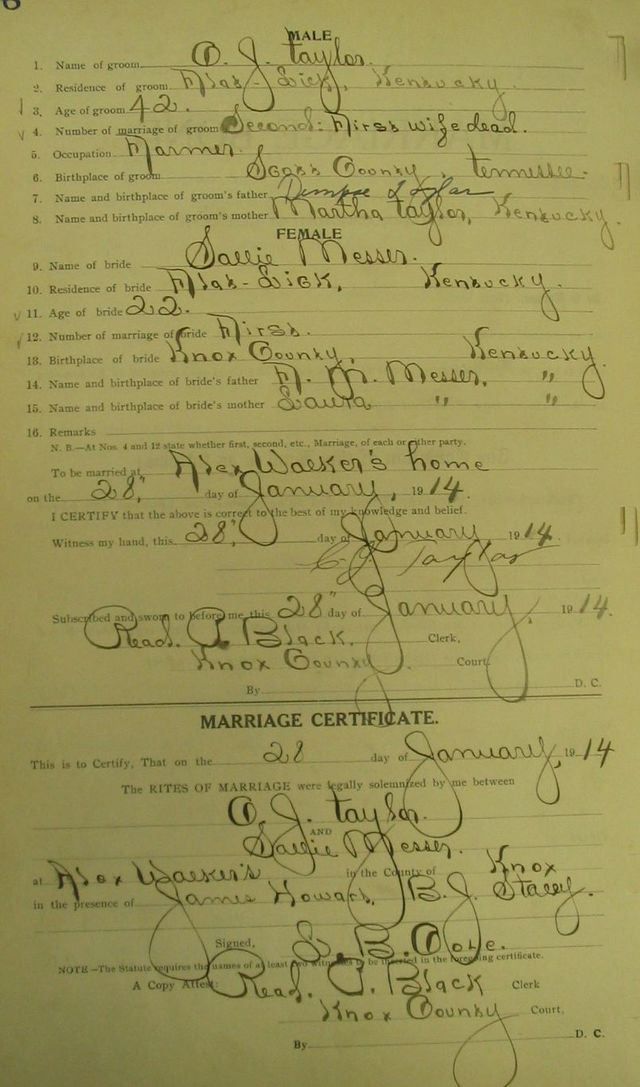 MALE
1. Name of groom O. J. Taylor.
2. Residence of groom Flat-Lick, Kentucky.
3. Age of groom 42.
4. Number of marriage of groom Second: First wife dead.
5. Occupation Farmer.
6. Birthplace of groom Scott County, Tennessee.
7. Name and birthplace of groom's father Taylor
8. Name and birthplace of groom's mother Martha Taylor, Kentucky.
FEMALE
9. Name of bride Sallie Messer.
10. Residence of bride Flat-Lick, Kentucky.
11. Age of bride 22.
12. Number of marriage of bride First.
13. Birthplace of bride Knox County, Kentucky.
14. Name and birthplace of bride's father F. M. Messer, "
15. Name and birthplace of bride's mother Laura " "
16. Remarks
N. B.—At Nos. 4 and 12 state whether first, second, etc., Marriage, of each or other party.
To be married at Alex Walker's home
on the 28" day of January, 1914.
I CERTIFY that the above is correct to the best of my knowledge and belief.
Witness my hand, this 28" day of January, 1914.
Taylor
Subscribed and sworn to before me this 28" day of January, 1914.
Read. P. Black. Clerk,
Knox County Court
By D. C.
MARRIAGE CERTIFICATE.
This is to Certify, That on the 28 day of January, 1914
The RITES OF MARRIAGE were legally solemnized by me between
O. J. Taylor.
AND
Sallie Messer.
at Alex Walker's in the County of Knox
in the presence of James Howard, B. J. Stacy.
Signed, L. B. Cole.
NOTE—The Statute requires the names of at least two witnesses to be inserted in the foregoing certificate.
A Copy Attest: Read. P. Black Clerk
Knox County Court,
By D. C.